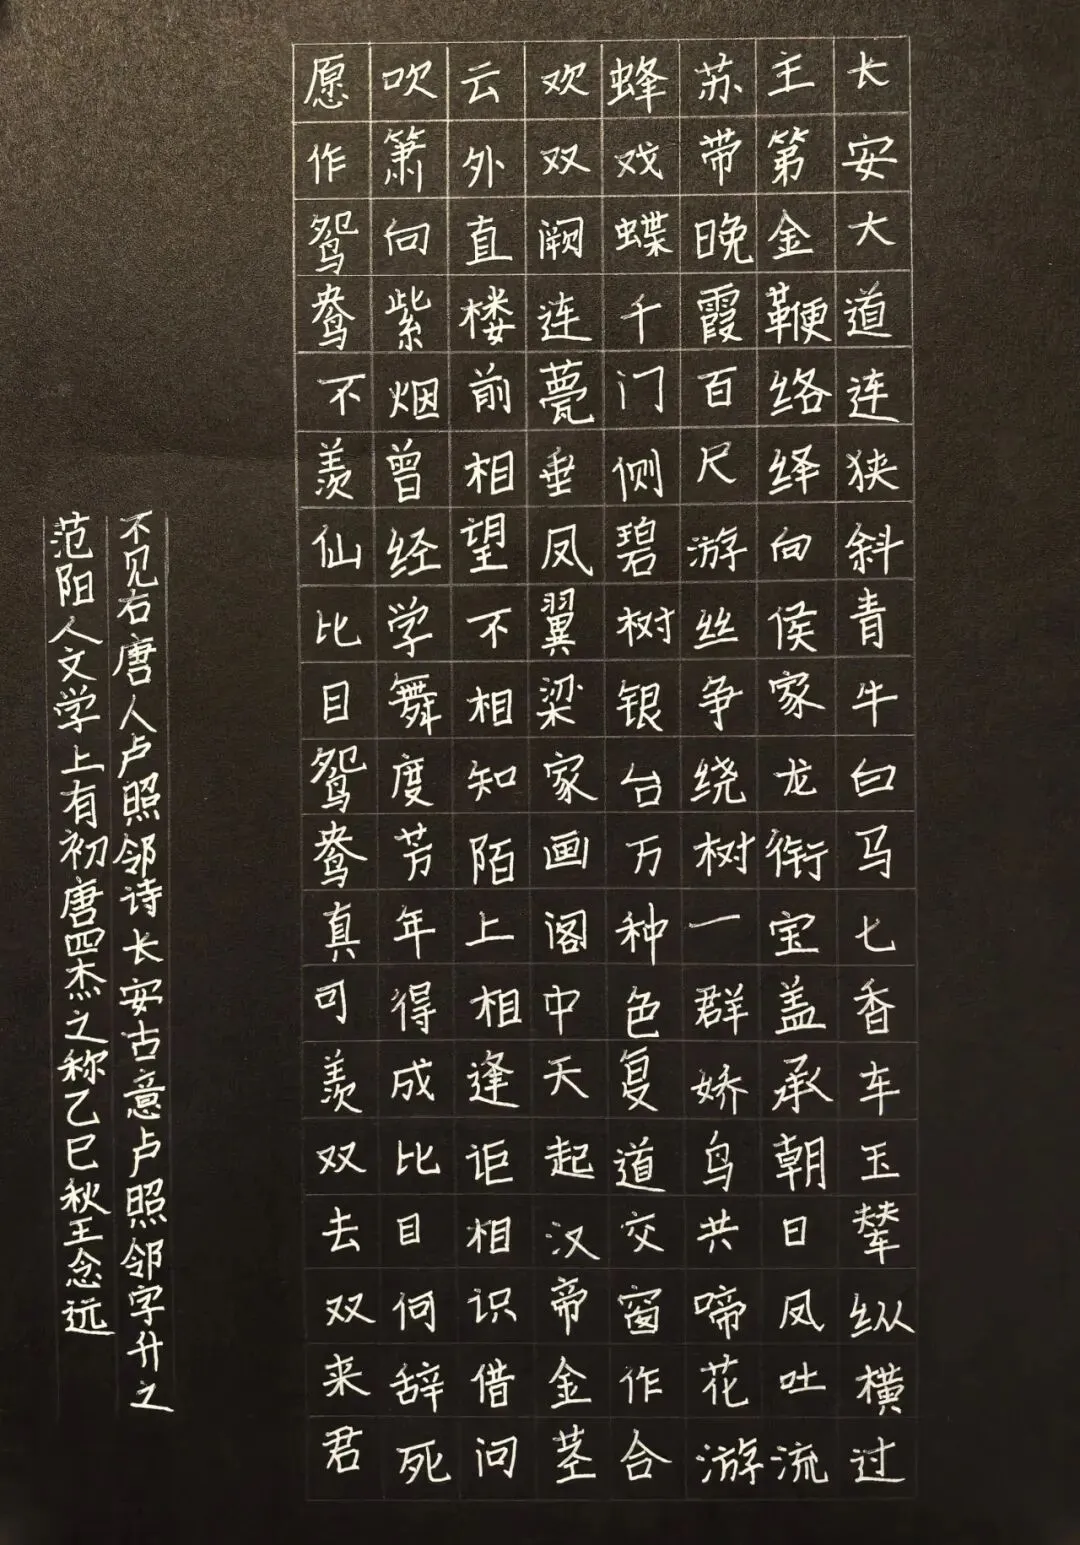 长安大道连狭斜青牛白马七香车玉辇纵横过
主第金鞭络绎向侯家龙衔宝盖承朝日凤吐流
苏带晚霞百尺游丝争绕树一群娇鸟共啼花游
蜂戏蝶千门侧碧树银台万种色复道交窗作合
欢双阙连甍垂凤翼梁家画阁中天起汉帝金茎
云外直楼前相望不相知陌上相逢讵相识借问
吹箫向紫烟曾经学舞度芳年得成比目何辞死
愿作鸳鸯不羡仙比目鸳鸯真可羡双去双来君
不见右唐人卢照邻诗长安古意卢照邻字升之
范阳人文学上有初唐四杰之称乙巳秋王念远